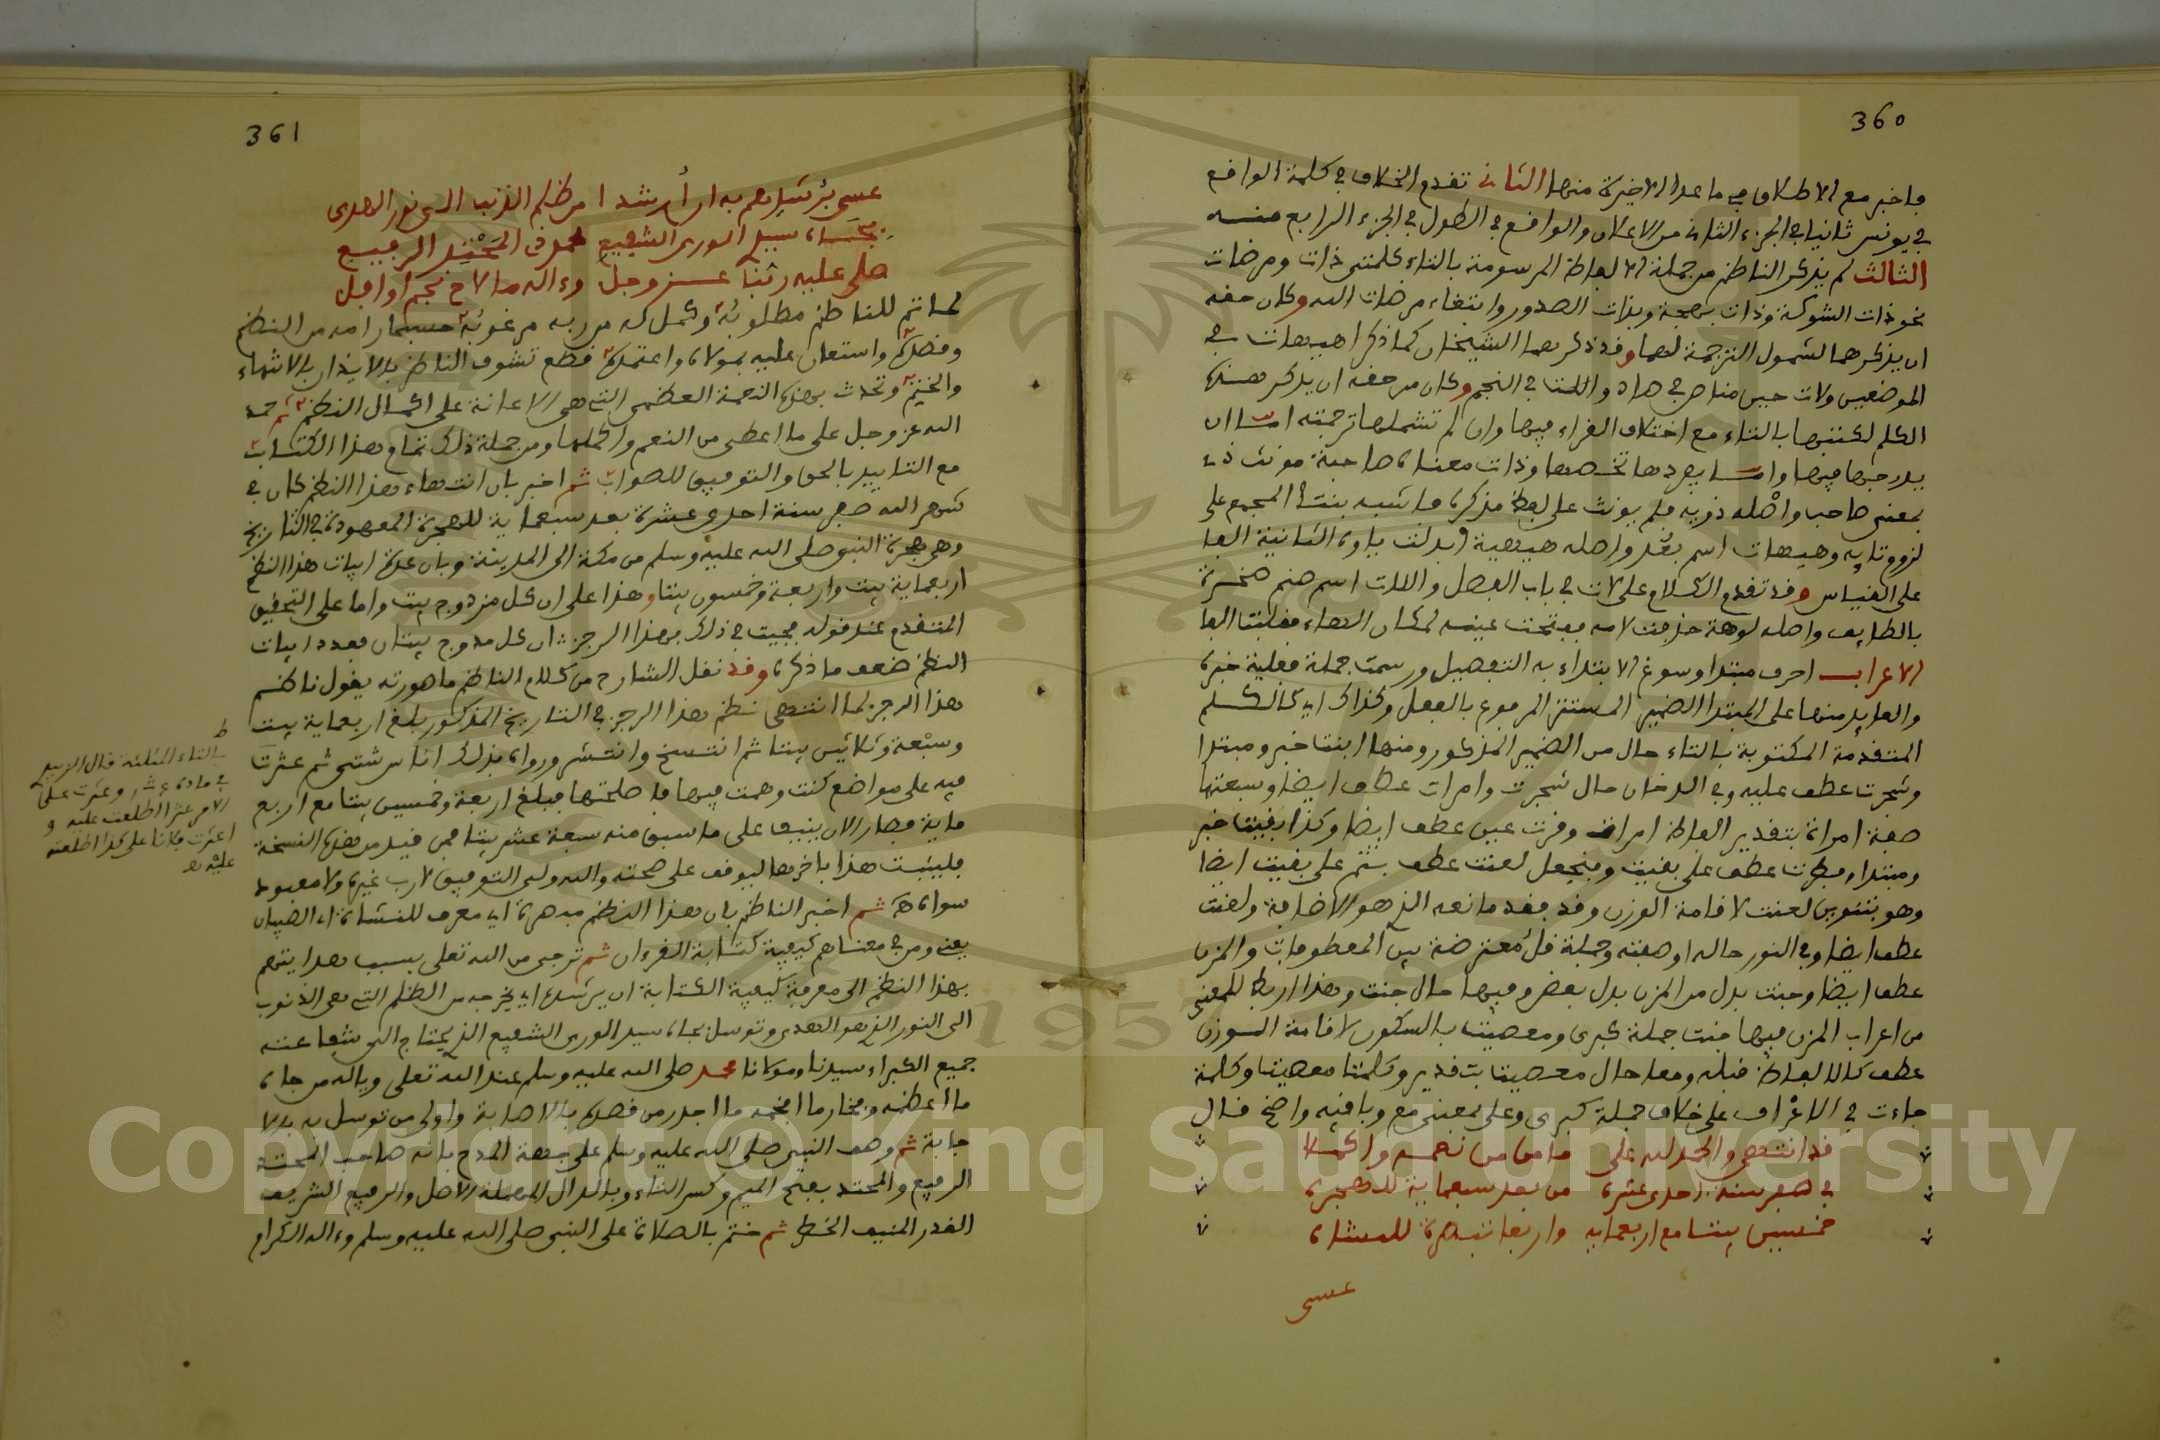 360
فاخبر مع الاطلاق في ما عدا الاخيرة منها الثاني تقدم الخلاف في كلمة الواقع
في يونس ثانيا في الجزء الثاني من الاعلان والواقع في الطول في الجزء الرابع منه
الثالث لم يذكر الناظم من جملة الالفاظ المرسومة بالتاء كلمتي ذات ومرضات
نحو ذات الشوكة وذات بهجة وبذات الصدور وابتغاء مرضات الله وكان حقه
ان يذكرهما لشمول الترجمة لهما وقد ذكرهما الشيخان كما ذكرا هيهات في
الموضعين ولات حين مناص في ص واللت في النجم وكان من حقه ان يذكر هذه
الكلم لكتبها بالتاء مع اختلاف القراء فيها وان لم تشملها ترجمته اما ان
يدرجها فيها واما يفردها تخصها وذات معناه صاحبة مونث ذي
بمعنى صاحب واصله ذويه فلم يونث على لفظ مذكره فاشبه بنتا المجمع على
لزوم تايه وهيهات اسم بعد واصله هيهية ابدلت ياوه الثانية الفا
على القياس وقد تقدم الكلام على لات في باب الفصل واللات اسم صنم صخرة
بالطايف واصله لوهة حذفت لامه ففتحت عينه لمكان الهاء فقلبت الفا
الاعراب احرف مبتدا وسوغ الابتداء به التفصيل ورسمت جملة فعلية خبره
والعايد منها على المبتدا الضمير المستتر المرفوع بالفعل وكذاك اي كالكلم
المتقدمة المكتوبة بالتاء حال من الضمير المذكور ومنها ابنت خبر ومبتدا
وشجرت عطف عليه وفي الدخان حال شجرت وامرات عطف ايضا وسبعتها
صفة امراة بتقدير الفاظ امرات وقرت عين عطف ايضا وكذا بقيت خبر
ومبتدا وفطرت عطف على بقيت ونجعل لعنت عطف بثم على بقيت ايضا
وهو بتنوين لعنت لاقامة الوزن وقد فقد مانعه الذي هو الاضافة ولعنت
عطف ايضا وفي النور حاله او صفته وجملة قل معترضة بين المعطوفات والمزن
عطف ايضا وجنت بدل من المزن بدل بعض وفيها حال جنت وهذا اربط للمعنى
من اعراب المزن فيها جنت جملة كبرى ومعصيت بالسكون لاقامة الوزن
عطف كالالفاظ قبله ومعا حال معصيت بتقدير وكلمتا معصيت وكلمة
جاءت في الاعراف على خلاف جملة كبرى وعلى بمعنى مع وباقيه واضح قال
قد انتهى والحمد لله على ما من من نعمه واكملا
في صفر سنة احدى عشرة من بعد سبعماية للهجرة
خمسين بيتا مع اربعمايه واربعا تبصرة للنشاه
عسى
361
عسى برشدهم به ان ارشدا من ظلم الذنب الى نور الهدى
بجاه سيد الورى الشفيع محمد ذي المحتد الرفيع
صلى عليه ربنا عز وجل وءاله ما لاح نجم او افل
لما تم للناظم مطلوبه وكمل له من ربه مرغوبه حسبما رامه من النظم
وفصله واستعان عليه بمولاه واعتمده قطع تشوف الناظر بالايذان بالانتهاء
والختم وتحدث بهذه النعمة العظمى التي هي الاعانة على اكمال النظم ثم حمد
الله عز وجل على ما اعطى من النعم واكملها ومن جملة ذلك تمام هذا الكتاب
مع التاييد بالحق والتوفيق للصواب ثم اخبر بان انتهاء هذا النظم كان في
شهر الله صفر سنة احدى عشرة بعد سبعماية للهجرة المعهودة في التاريخ
وهي هجرة النبي صلى الله عليه وسلم من مكة الى المدينة وبان عدة ابيات هذا النظم
اربعماية بيت واربعة وخمسون بيتا وهذا على ان كل مزدوج بيت واما على التحقيق
المتقدم عند قوله فجيت في ذلك بهذا الرجز ان كل مزدوج بيتان فعدد ابيات
النظم ضعف ما ذكره وقد نقل الشارح من كلام الناظم ما صورته يقول ناظم
هذا الرجز لما انتهى نظم هذا الرجز في التاريخ المذكور بلغ اربعماية بيت
وسبعة وثلاثين بيتا ثم انتسخ وانتشر ورواه بذلك اناس شتى ثم عثرت
فيه على مواضع كنت وهمت فيها فاصلحتها فبلغ اربعة وخمسين بيتا مع اربع
ماية فصار الان ينيف على ما سبق منه سبعة عشر بيتا فمن قيد من هذه النسخة
فليثبت هذا باخرها ليوقف على صحته والله ولي التوفيق لا رب غيره ولا معبود
سواه ثم اخبر الناظم بان هذا النظم تبصرة اي معرف للنشاة اي الصبيان
يعني ومن في معناهم كيفية كتابة القرءان ثم ترجى من الله تعلى بسبب هدايتهم
بهذا النظم الى معرفة كيفية الكتابة ان يرشده اي يخرجه من الظلم التي هي الذنوب
الى النور الذي هو الهدى وتوسل بجاه سيد الورى الشفيع الذي يحتاج الى شفاعته
جميع الكبراء سيدنا ومولانا محمد صلى الله عليه وسلم عند الله تعلى وياله من جاه
ما اعظمه وفخار ما افخمه ما اجدر من قصده بالاصابة واولى من توسل به بالا
جابة ثم وصف النبي صلى الله عليه وسلم على جهة المدح بانه صاحب المحتد
الرفيع والمحتد بفتح الميم وكسر التاء وبالدال المهملة الاصل والرفيع الشريف
القدر المنيف الخطر ثم ختم بالصلاة على النبي صلى الله عليه وسلم وءاله الكرام
ط
بالثاء المثلثة قال
في مادة عثر وعثرت على
الامر عثرا اطلعت عليه و
اعثرت فلانا على كذا اطلعته
عليه